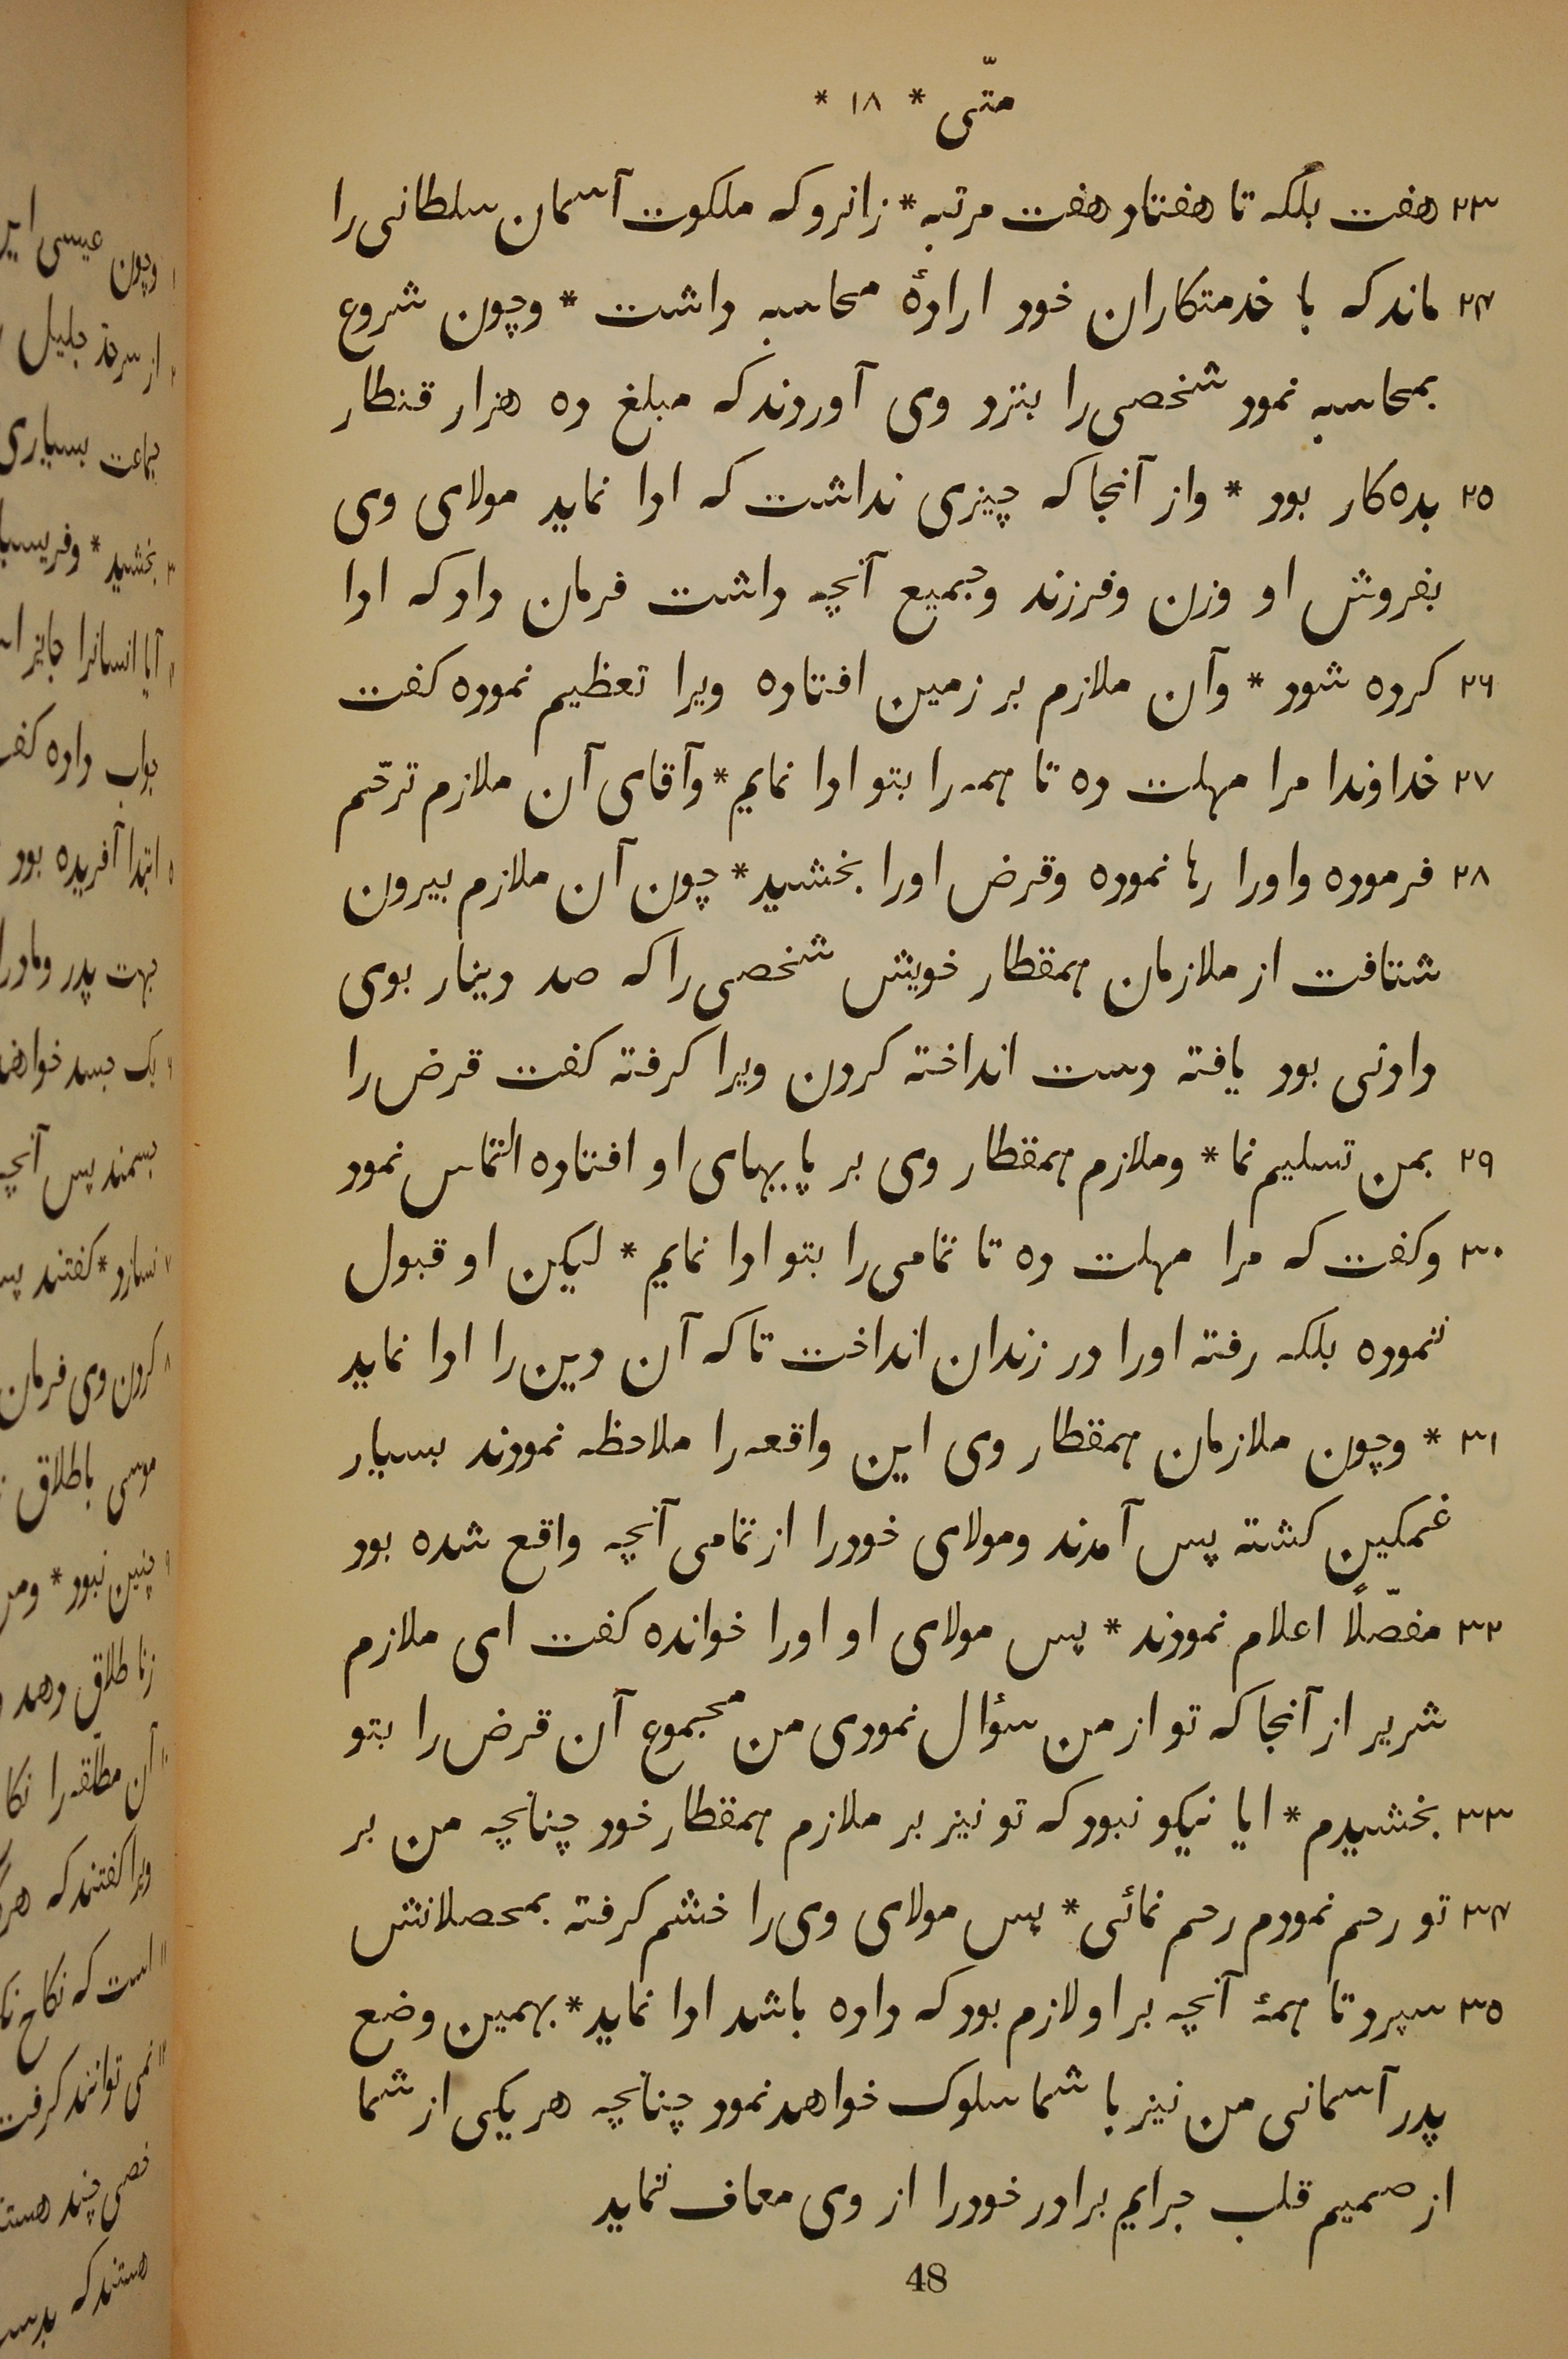 متّی * ۱۸ *
۲۳ هفت بلکه تا هفتاد هفت مرتبه * زانرو که ملکوت آسمان سلطانی را
۲۴ ماند که با خدمتکاران خود ارادهٔ محاسبه داشت * وچون شروع
بمحاسبه نمود شخصی را بنزد وی آوردند که مبلغ ده هزار قنطار
۲۵ بده‌کار بود * واز آنجا که چیزی نداشت که ادا نماید مولای وی
بفروش او وزن وفرزند وجمیع آنچه داشت فرمان داد که ادا
۲۶ کرده شود * وآن ملازم بر زمین افتاده ویرا تعظیم نموده کفت
۲۷ خداوندا مرا مهلت ده تا همه را بتو ادا نمایم * وآقای آن ملازم ترحّم
۲۸ فرموده واورا رها نموده وقرض اورا بخشید * چون آن ملازم بیرون
شتافت از ملازمان همقطار خویش شخصی را که صد دینار بوی
دادنی بود یافته دست انداخته کردن ویرا کرفته کفت قرض را
۲۹ بمن تسلیم نما * وملازم همقطار وی بر پایهای او افتاده التماس نمود
۳۰ وکفت که مرا مهلت ده تا تمامی را بتو ادا نمایم * لیکن او قبول
ننموده بلکه رفته اورا در زندان انداخت تا که آن دین را ادا نماید
۳۱ * وچون ملازمان همقطار وی این واقعه را ملاحظه نمودند بسیار
غمکین کشته پس آمدند ومولای خودرا از تمامی آنچه واقع شده بود
۳۲ مفصّلًا اعلام نمودند * پس مولای او اورا خوانده کفت ای ملازم
شریر از آنجا که تو از من سؤال نمودی من مجموع آن قرض را بتو
۳۳ بخشیدم * ایا نیکو نبود که تو نیز بر ملازم همقطار خود چنانچه من بر
۳۴ تو رحم نمودم رحم نمائی * پس مولای وی را خشم کرفته بمحصلانش
۳۵ سپرد تا همهٔ آنچه بر او لازم بود که داده باشد ادا نماید * بهمین وضع
پدر آسمانی من نیز با شما سلوک خواهد نمود چنانچه هر یکی از شما
از صمیم قلب جرایم برادر خودرا از وی معاف ننماید
48
وچون عیسی
از سرحدّ جلیل
جماعت بسیاری
بخشید *
آیا انسانرا جایز
جواب داده
ابتدا آفریده بود
جهت پدر ومادر
یک جسد
بسمند پس آنچه
نسازد * کفتند
کردن وی فرمان
موسی باطلاق
چنین نبود *
زنا طلاق دهد
آن مطلّقه را
ویرا کفتند که
است که نکاح
نمی توانند کرفت
خصی چند
هستند که